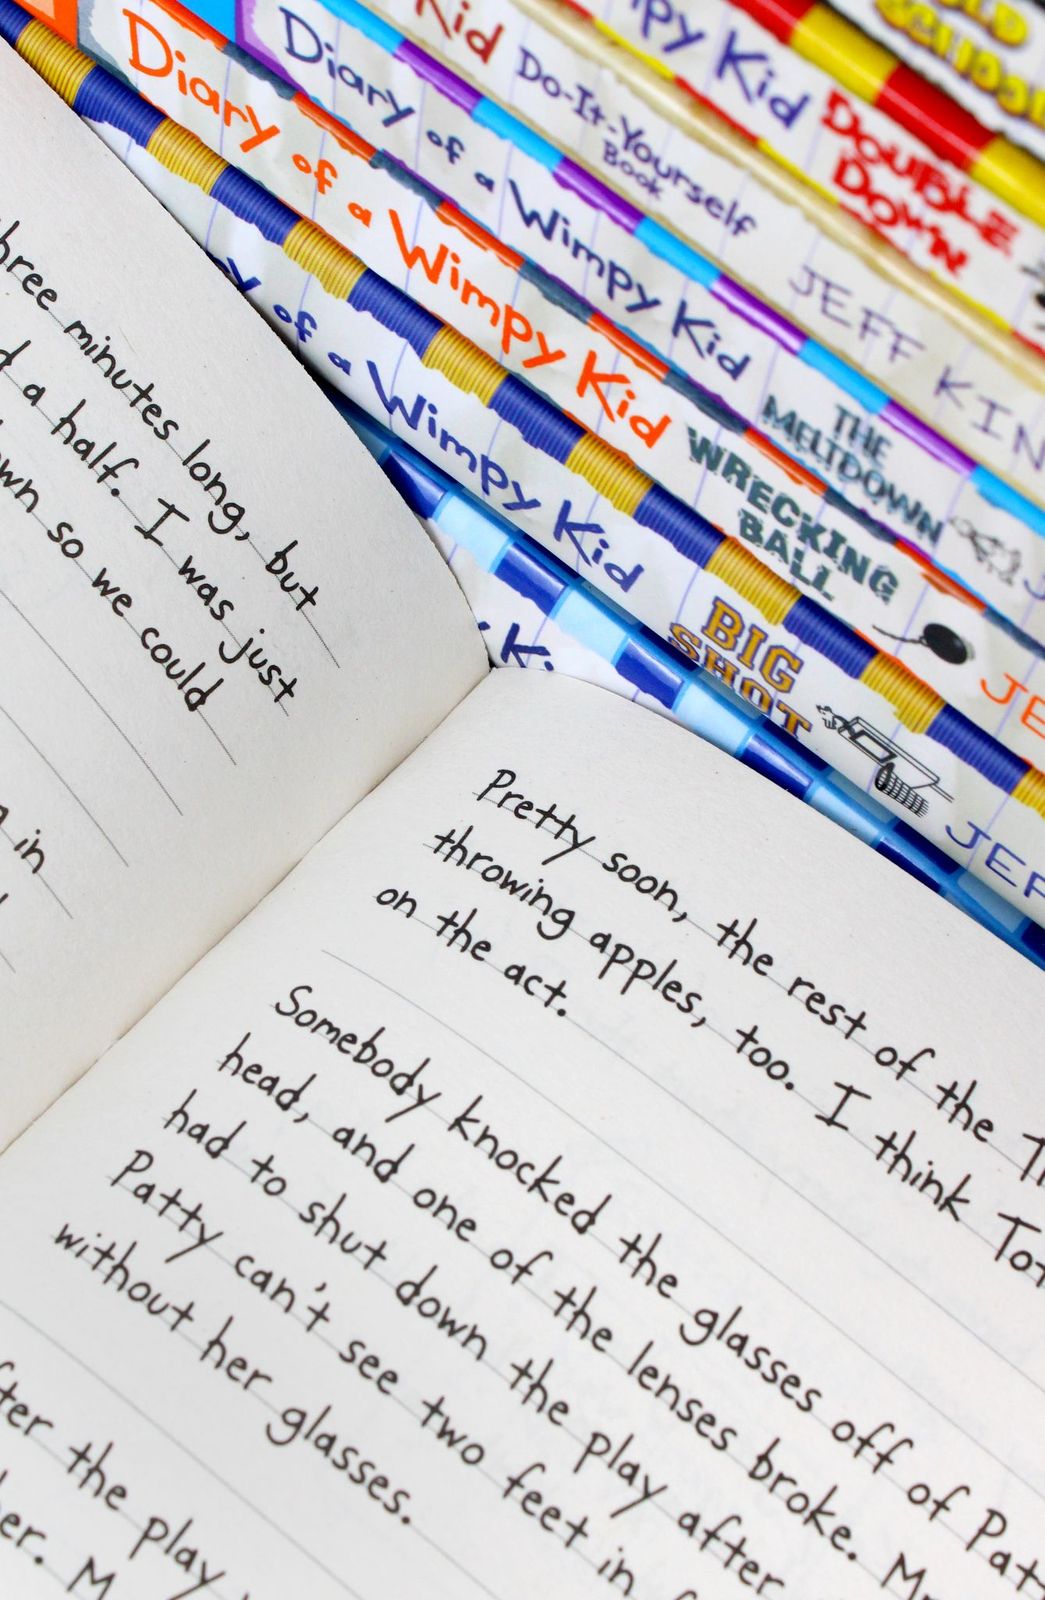 OLD
SCHOOL
Wimpy Kid
DOUBLE
DOWN
Kid
Do-It-Yourself
Book
JEFF KIN
Diary of a Wimpy Kid
THE
MELTDOWN
J
Diary of a Wimpy Kid
WRECKING
BALL
JE
of a Wimpy Kid
BIG
SHOT
JEF
K.
three minutes long, but
a half. I was just
so we could
in
Pretty soon, the rest of the
throwing apples, too. I think Tot
on the act.
Somebody knocked the glasses off of Patt
head, and one of the lenses broke.
had to shut down the play after
Patty can't see two feet in
without her glasses.
the play